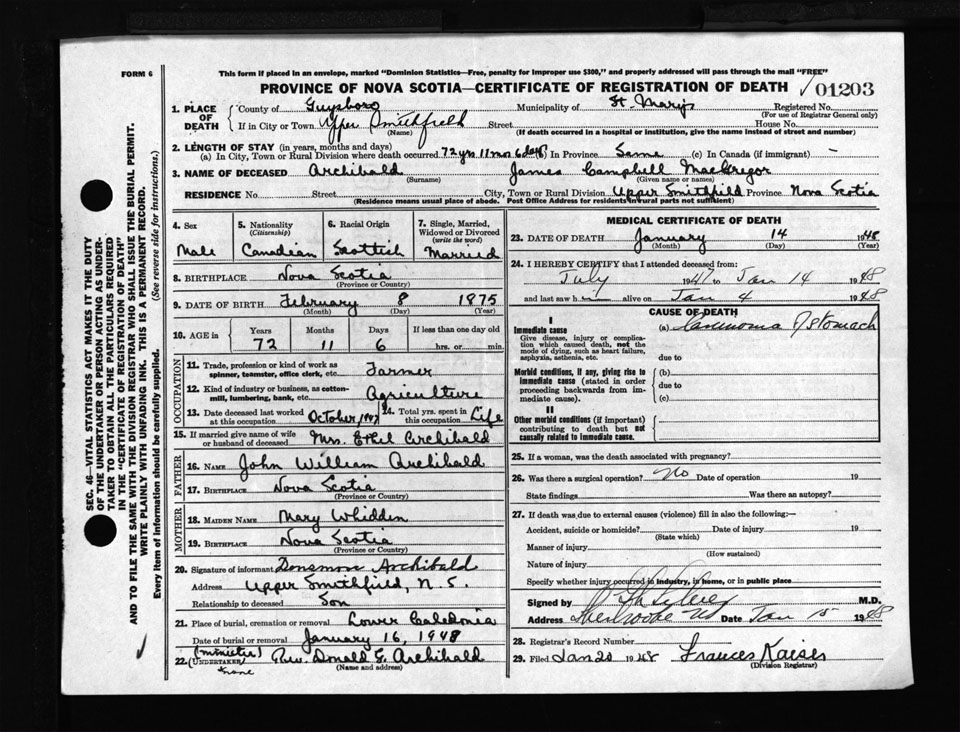 FORM 6
This form if placed in an envelope, marked "Dominion Statistics—Free, penalty for improper use $300," and properly addressed will pass through the mail "FREE"
PROVINCE OF NOVA SCOTIA—CERTIFICATE OF REGISTRATION OF DEATH
01203
1. PLACE OF DEATH { County of Guysboro Municipality of St. Marys Registered No.
(For use of Registrar General only)
If in City or Town Upper Smithfield Street House No.
(Name) (If death occurred in a hospital or institution, give the name instead of street and number)
2. LENGTH OF STAY (in years, months and days)
(a) In City, Town or Rural Division where death occurred 72 yrs 11 mos 6 days (b) In Province Same (c) In Canada (if immigrant) –
3. NAME OF DECEASED Archibald James Campbell MacGregor
(Surname) (Given name or names)
RESIDENCE No. Street City, Town or Rural Division Upper Smithfield Province Nova Scotia
(Residence means usual place of abode. Post Office Address for residents in rural parts not sufficient)
SEC. 46—VITAL STATISTICS ACT MAKES IT THE DUTY
OF THE UNDERTAKER OR PERSON ACTING AS UNDER-
TAKER TO OBTAIN ALL THE PARTICULARS REQUIRED
IN THE "CERTIFICATE OF REGISTRATION OF DEATH"
AND TO FILE THE SAME WITH THE DIVISION REGISTRAR WHO SHALL ISSUE THE BURIAL PERMIT.
WRITE PLAINLY WITH UNFADING INK. THIS IS A PERMANENT RECORD.
Every item of information should be carefully supplied. (See reverse side for instructions.)
4. Sex
Male
5. Nationality
(Citizenship)
Canadian
6. Racial Origin
Scottish
7. Single, Married,
Widowed or Divorced
(write the word)
Married
8. BIRTHPLACE Nova Scotia
(Province or Country)
9. DATE OF BIRTH February 8 1875
(Month) (Day) (Year)
10. AGE in { Years Months Days If less than one day old
72 11 6 hrs. or min.
OCCUPATION
11. Trade, profession or kind of work as
spinner, teamster, office clerk, etc. Farmer
12. Kind of industry or business, as cotton-
mill, lumbering, bank, etc. Agriculture
13. Date deceased last worked
at this occupation October, 1947
14. Total yrs. spent in
this occupation Life
15. If married give name of wife
or husband of deceased Mrs. Ethel Archibald
FATHER
16. NAME John William Archibald
17. BIRTHPLACE Nova Scotia
(Province or Country)
MOTHER
18. MAIDEN NAME Mary Whidden
19. BIRTHPLACE Nova Scotia
(Province or Country)
20. Signature of informant Densmore Archibald
Address Upper Smithfield, N. S.
Relationship to deceased Son
21. Place of burial, cremation or removal Lower Caledonia
Date of burial or removal January 16, 1948
22. (minister) (UNDERTAKER) Rev. Donald E. Archibald
none (Name and address)
MEDICAL CERTIFICATE OF DEATH
23. DATE OF DEATH January 14 1948
(Month) (Day) (Year)
24. I HEREBY CERTIFY that I attended deceased from:
July 1947 to Jan 14 1948
and last saw h alive on Jan 4 1948
CAUSE OF DEATH
I
Immediate cause
Give disease, injury or complica-
tion which caused death, not the
mode of dying, such as heart failure,
asphyxia, asthenia, etc.
(a) Carcinoma of Stomach
due to
Morbid conditions, if any, giving rise to
immediate cause (stated in order
proceeding backwards from im-
mediate cause).
(b)
due to
(c)
II
Other morbid conditions (if important)
contributing to death but not
causally related to immediate cause.
25. If a woman, was the death associated with pregnancy?
26. Was there a surgical operation? No Date of operation 19
State findings Was there an autopsy?
27. If death was due to external causes (violence) fill in also the following:—
Accident, suicide or homicide? Date of injury 19
(State which)
Manner of injury
(How sustained)
Nature of injury
Specify whether injury occurred in industry, in home, or in public place
Signed by M.D.
Address Sherbrooke NS Date Jan 15 1948
28. Registrar's Record Number
29. Filed Jan 20 1948 Frances Kaiser
(Division Registrar)